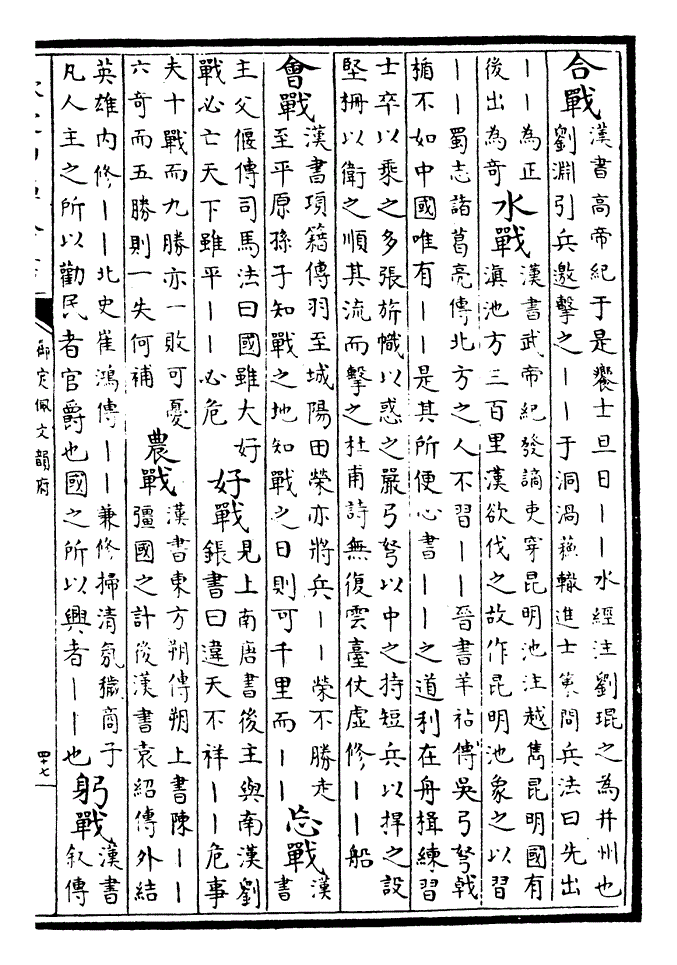 合戰
漢書高帝紀于是饗士旦日丨丨水經注劉琨之為并州也
劉淵引兵邀擊之丨丨于洞渦蘇轍進士策問兵法曰先出
丨丨為正
後出為奇
水戰
漢書武帝紀發謫吏穿昆明池注越雋昆明國有
滇池方三百里漢欲伐之故作昆明池象之以習
丨丨蜀志諸葛亮傳北方之人不習丨丨晉書羊祜傳吳弓弩戟
楯不如中國唯有丨丨是其所便心書丨丨之道利在舟楫練習
士卒以乘之多張旂幟以惑之嚴弓弩以中之持短兵以捍之設
堅柵以衛之順其流而擊之杜甫詩無復雲臺仗虛修丨丨船
會戰
漢書項籍傳羽至城陽田榮亦將兵丨丨榮不勝走
至平原孫子知戰之地知戰之日則可千里而丨丨
忘戰
漢
書
主父偃傳司馬法曰國雖大好
戰必亡天下雖平丨丨必危
好戰
見上南唐書後主與南漢劉
鋹書曰違天不祥丨丨危事
夫十戰而九勝亦一敗可憂
六奇而五勝則一失何補
農戰
漢書東方朔傳朔上書陳丨丨
彊國之計後漢書袁紹傳外結
英雄內修丨丨北史崔鴻傳丨丨兼修掃清氛穢商子
凡人主之所以勸民者官爵也國之所以興者丨丨也
躬戰
漢書
敘傳
御定佩文韻府
四十七